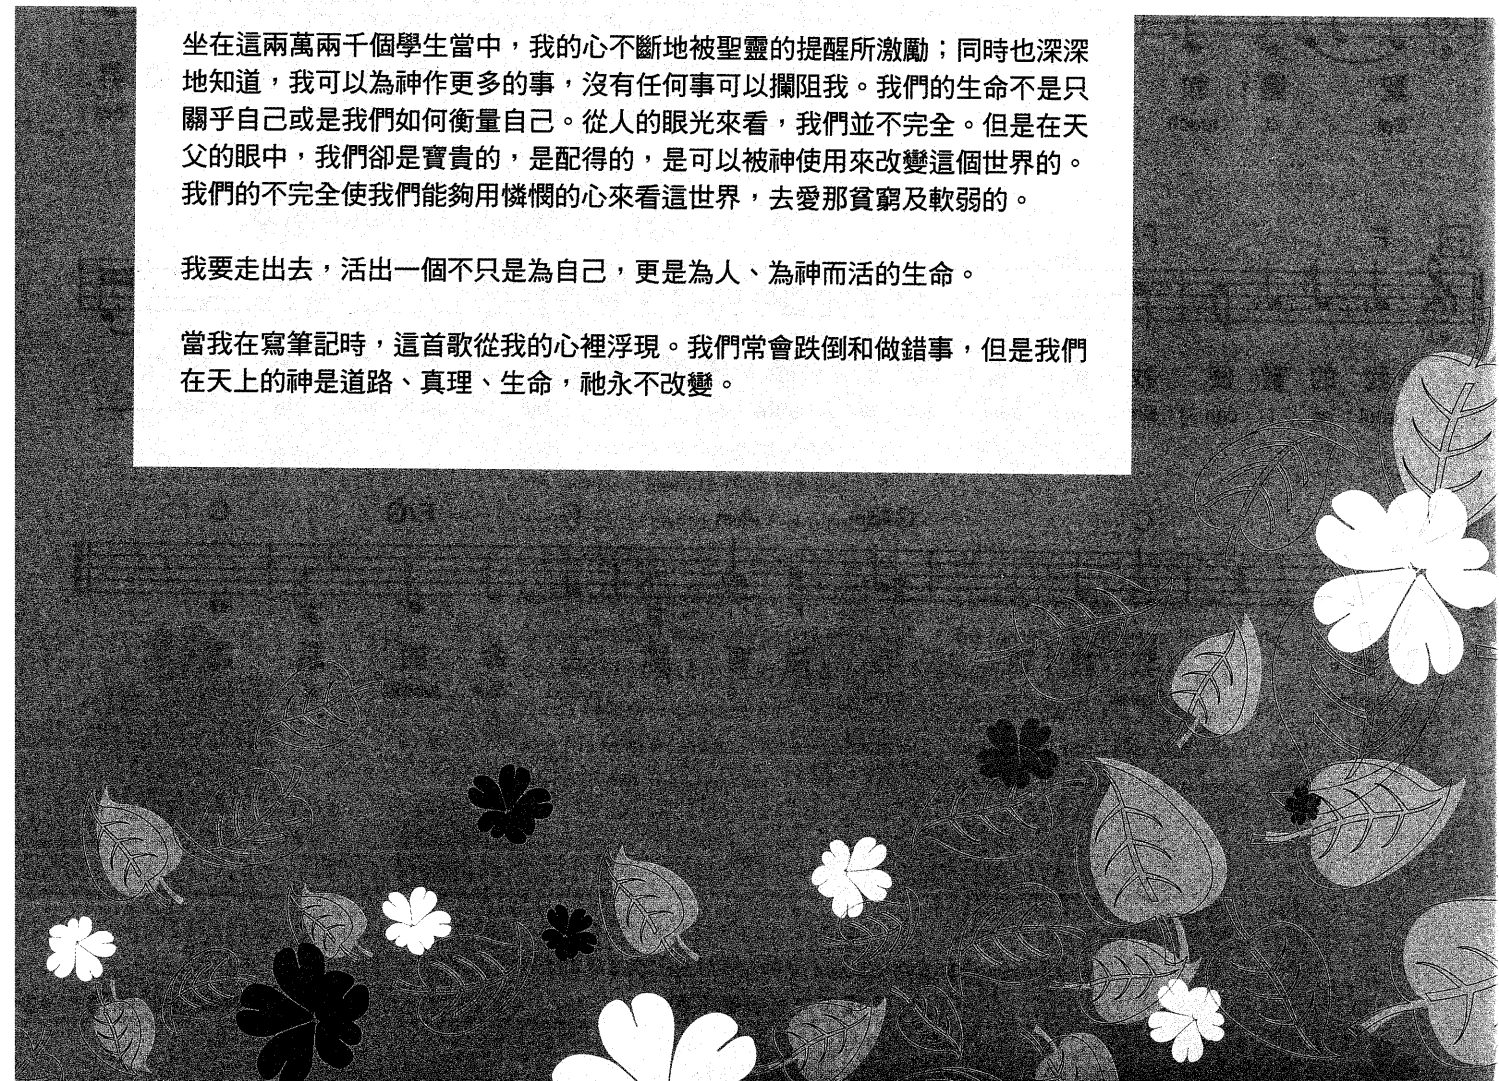 坐在這兩萬兩千個學生當中，我的心不斷地被聖靈的提醒所激勵；同時也深深
地知道，我可以為神作更多的事，沒有任何事可以攔阻我。我們的生命不是只
關乎自己或是我們如何衡量自己。從人的眼光來看，我們並不完全。但是在天
父的眼中，我們卻是寶貴的，是配得的，是可以被神使用來改變這個世界的。
我們的不完全使我們能夠用憐憫的心來看這世界，去愛那貧窮及軟弱的。
我要走出去，活出一個不只是為自己，更是為人、為神而活的生命。
當我在寫筆記時，這首歌從我的心裡浮現。我們常會跌倒和做錯事，但是我們
在天上的神是道路、真理、生命，祂永不改變。